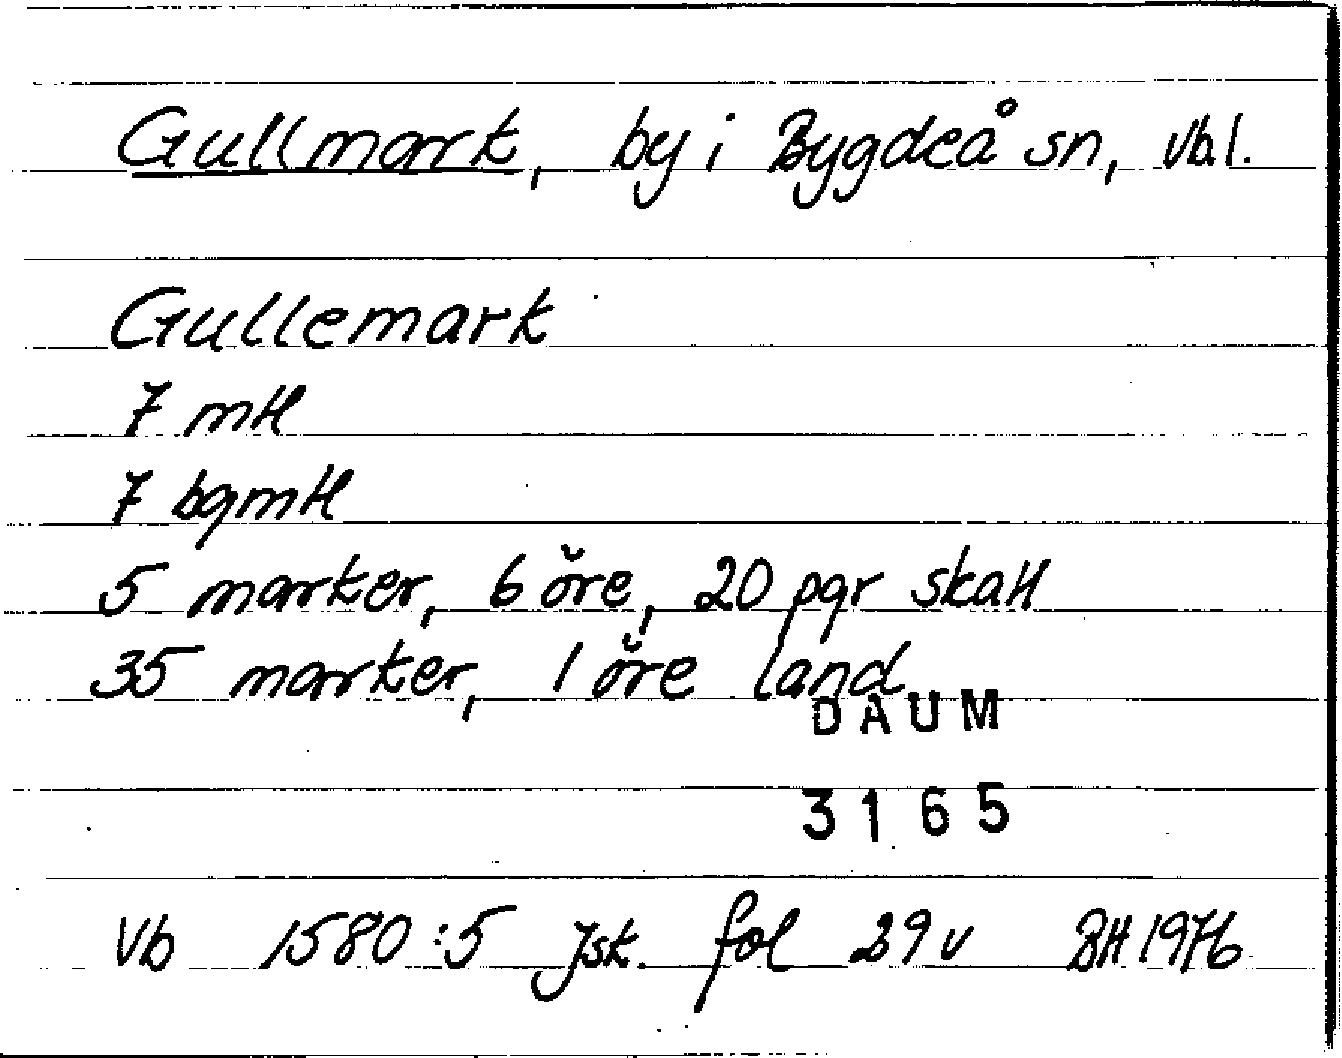 Gullmark, by i Bygdeå sn, Vb.l.
Gullemark
7 mtl
7 bgmtl
5 marker, 6 öre, 20 pgr skatt
35 marker, 1 öre land
DAUM
3165
Vb 1580:5 Jsk. fol 29 v BH 1976